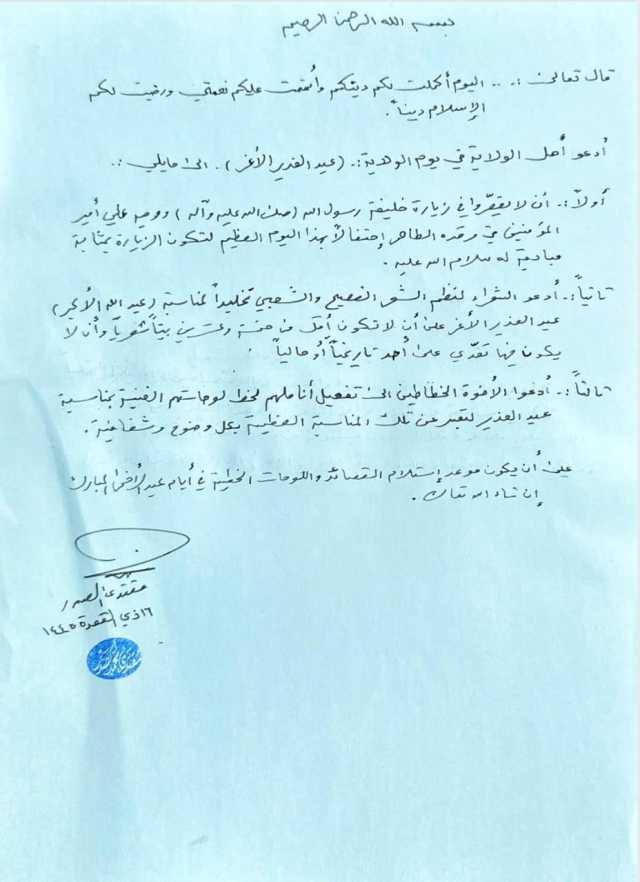 بسم الله الرحمن الرحيم
قال تعالى :. .. اليوم أكملت لكم دينكم وأتممت عليكم نعمتي ورضيت لكم
الإسلام ديناً .
أدعو أهل الولاية في يوم الولاية :. (عيد الغدير الأغر) . الى مايلي :.
أولاً :. أن لا يقصّروا في زيارة خليفة رسول الله (صلى الله عليه وآله) ووصيه علي أمير
المؤمنين في مرقده الطاهر إحتفالاً بهذا اليوم العظيم لتكون الزيارة بمثابة
مبايعة له سلام الله عليه .
ثانياً :. أدعو الشعراء لنظم الشعر الفصيح والشعبي تخليداً لمناسبة (عيد الله الأكبر)
عيد الغدير الأغر على أن لا تكون أقل من خمسة وعشرين بيتاً شعرياً وأن لا
يكون فيها تعدّي على أحد تاريخياً أو حالياً .
ثالثاً :. أدعوا الأخوة الخطاطين الى تفعيل أناملهم لخط لوحاتهم الفنية بمناسبة
عيد الغدير لتعبر عن تلك المناسبة العظيمة بكل وضوح وشفافية .
على أن يكون موعد إستلام القصائد واللوحات الخطية في أيام عيد الأضحى المبارك
إن شاء الله تعالى .
مقتدى الصدر
١٦ ذي القعدة ١٤٤٥